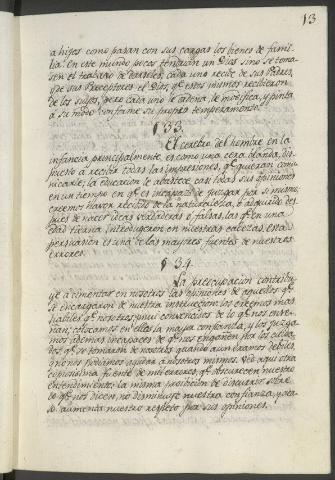 13
a hijos como pasan con sus cargas los bienes de fami-
lia: en este mundo pocos tendrian un Dios sino se toma-
sen el trabajo de darseles, cada uno recibe de sus Padres,
y de sus Preceptores el Dios, qe estos mismos recibieron
de los suyos, pero cada uno le ordena, le modifica, y pinta
a su modo conforme su propio temperamento.
§ 33.
El cerebro del hombre en la
infancia principalmente es como una cera blanda, dis-
puesto a recibir todas las impresiones, qe quieran comu-
nicarle; la educacion le abastece casi todas sus opiniones
en un tiempo en qe es incapaz de juzgar por si mismo;
creemos haver recibido de la naturaleza, ò adquirido des-
pues de nacer ideas verdaderas ò falsas, las qe en una
edad tierna, introdugeron en nuestras cabezas, esta
persuasion es una de las mayores fuentes de nuestros
errores.
§ 34.
La preocupacion contribu-
ye à cimentar en nosotros las opiniones de aquellos qe
se encargaron de nuestra instruccion, los creemos mas
habiles qe nosotros, muy convencidos de lo qe nos ense-
ñan; colocamos en ellos la mayor confianza, y los juzga-
mos ademas incapaces de qe nos engañen por los cuida-
dos, qe se tomaron de nosotros quando aun eramos debiles,
y no nos podiamos ayudar à nosotros mismos. Ved aqui otra
copiosisima fuente de mil errores, qe obscurecen nuestro
entendimiento, la misma proibicion de discurrir sobre
lo qe nos dicen, no disminuye nuestra confianza, y
solo aumenta nuestro respeto por sus opiniones.